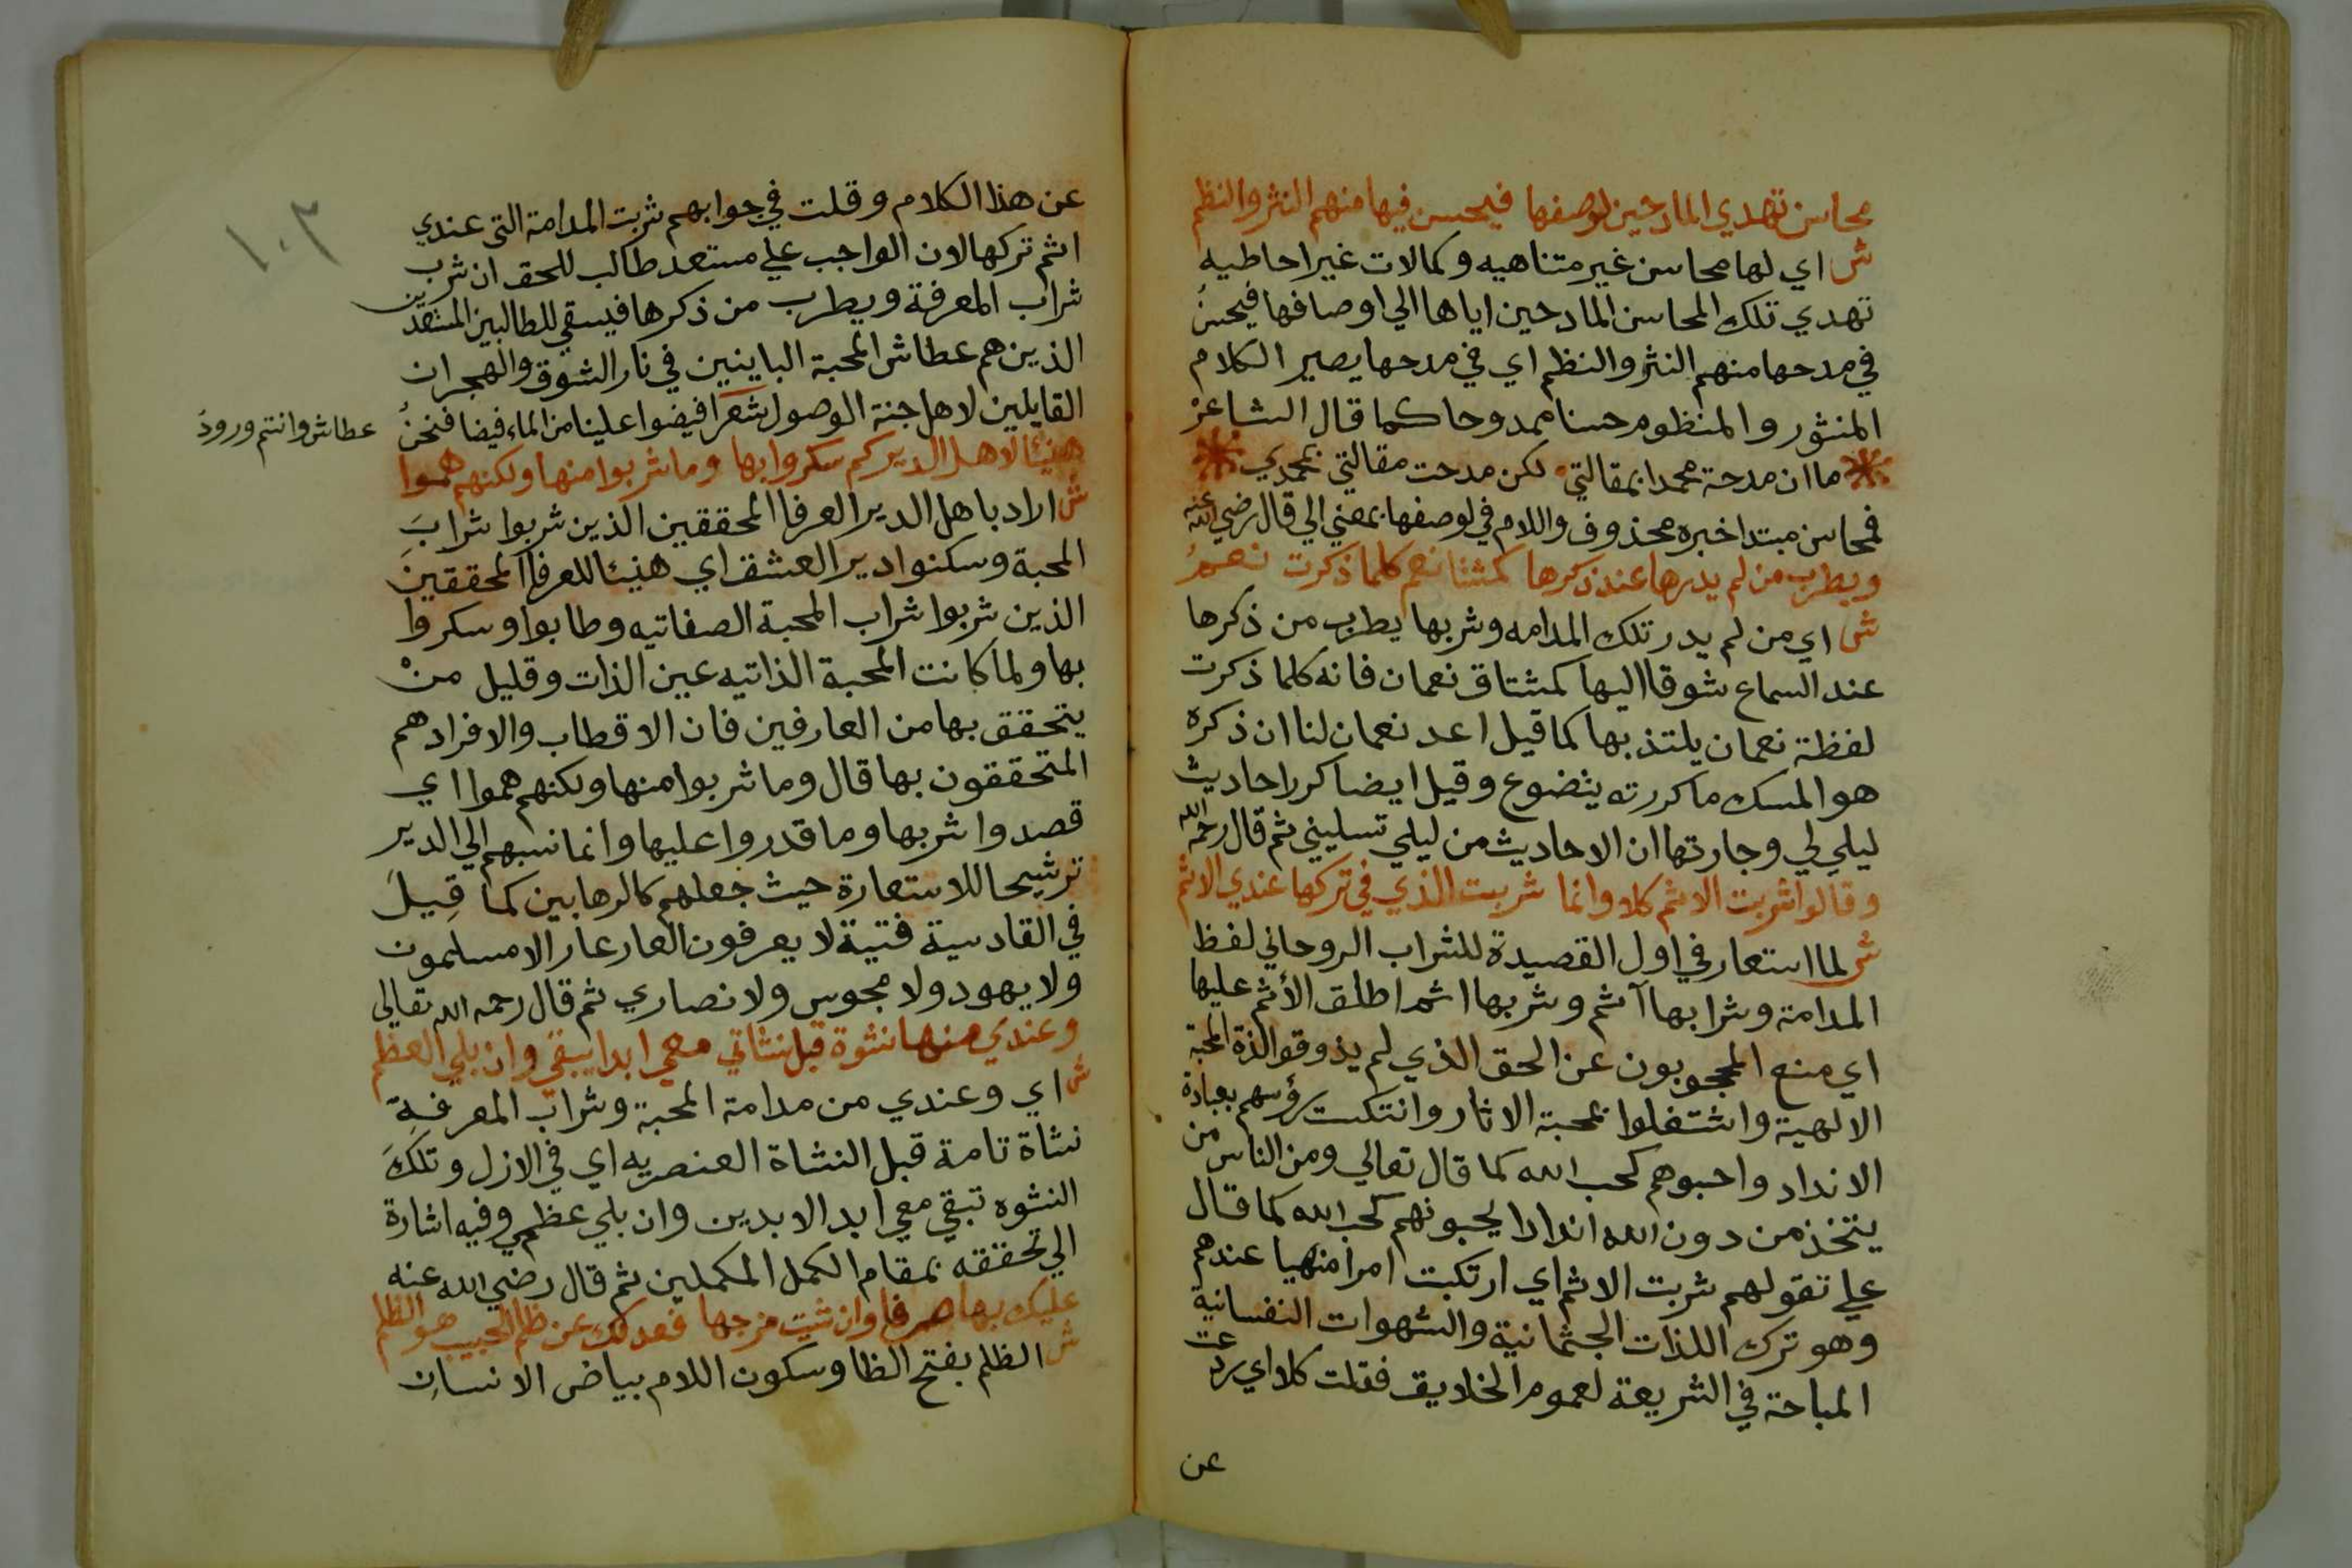 محاسن تهدي المادحين لوصفها فيحسن فيها منهم النثر والنظم
ش اي لها محاسن غير متناهيه وكمالات غير احاطيه
تهدي تلك المحاسن المادحين اياها الي اوصافها فيحسن
في مدحها منهم النثر والنظم اي في مدحها يصير الكلام
المنثور والمنظوم حسنا ممدوحا كما قال الشاعر
ما ان مدحة محمدا بمقالتي لكن مدحت مقالتي بمحمدي
فمحاسن مبتدا خبره محذوف واللام في لوصفها بمعني الي قال رضي الله عنه
ويطرب من لم يدرها عند ذكرها كمشتاق نعم كلما ذكرت نعم
ش اي من لم يدر تلك المدامه وشربها يطرب من ذكرها
عند السماع شوقا اليها كمشتاق نعمان فانه كلما ذكرت
لفظة نعمان يلتذ بها كما قيل اعد نعمان لنا ان ذكره
هو المسك ما كررته يتضوع وقيل ايضا كرر احاديث
ليلي لي وجارتها ان الاحاديث من ليلي تسليني ثم قال رحمه الله
وقالوا شربت الاثم كلا وانما شربت الذي في تركها عندي الاثم
ش لما استعار في اول القصيدة للشراب الروحاني لفظ
المدامة وشرابها آثم وشربها اثما اطلق الأثم عليها
اي منع المحجوبون عن الحق الذي لم يذوقوا لذة المحبة
الالهية واشتغلوا بمحبة الاثار وانتكست رؤسهم بعبادة
الانداد واحبوهم كحب الله كما قال تعالي ومن الناس من
يتخذ من دون الله اندادا يحبونهم كحب الله كما قال
علي تقولهم شربت الاثم اي ارتكبت امرا منهيا عندهم
وهو ترك اللذات الجثمانية والشهوات النفسانية
المباحة في الشريعة لعموم الخلايق فقلت كلا اي ردعت
عن
١٠٢
عن هذا الكلام وقلت في جوابهم شربت المدامة التي عندي
اثم تركها لان الواجب علي مستعد طالب للحق ان شرب
شراب المعرفة ويطرب من ذكرها فيسقي للطالبين المستعدين
الذين هم عطاش المحبة الباينين في نار الشوق والهجران
القايلين لاهل جنة الوصول شعرا فيضوا علينا من الماء فيضا فنحن
عطاش وانتم ورود
هنيئا لاهل الدير كم سكروا بها وما شربوا منها ولكنهم هموا
ش اراد باهل الدير العرفا المحققين الذين شربوا شراب
المحبة وسكنوا دير العشق اي هنيئا للعرفا المحققين
الذين شربوا شراب المحبة الصفاتيه وطابوا وسكروا
بها ولما كانت المحبة الذاتيه عين الذات وقليل من
يتحقق بها من العارفين فان الاقطاب والافراد هم
المتحققون بها قال وما شربوا منها ولكنهم هموا اي
قصدوا شربها وما قدروا عليها وانما نسبهم الي الدير
ترشيحا للاستعارة حيث جعلهم كالرهابين كما قيل
في القادسية فتية لا يعرفون العار عار الا مسلمون
ولا يهود ولا مجوس ولا نصاري ثم قال رحمه الله تعالي
وعندي منها نشوة قبل نشاتي معي ابدا يبقي وان بلي العظم
ش اي وعندي من مدامة المحبة وشراب المعرفة
نشاة تامة قبل النشاة العنصريه اي في الازل وتلك
النشوه تبقي معي ابد الابدين وان بلي عظمي وفيه اشارة
الي تحققه بمقام الكمل المكملين ثم قال رضي الله عنه
عليك بها صرفا وان شيت مزجها فعدلك عن ظلم الحبيب هو الظلم
ش الظلم بفتح الظا وسكون اللام بياض الانسان